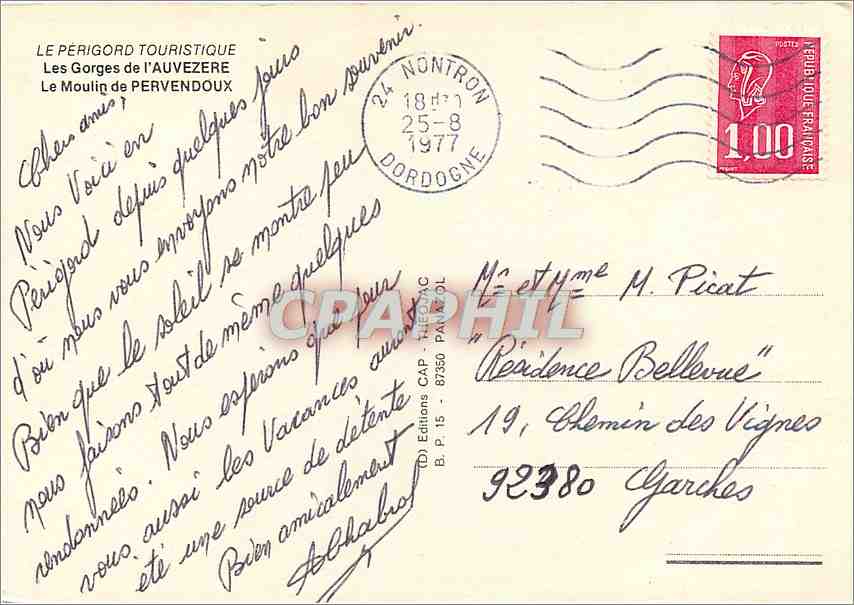 LE PÉRIGORD TOURISTIQUE
Les Gorges de l'AUVEZERE
Le Moulin de PERVENDOUX
Chers amis,
Nous Voici en
Périgord depuis quelques jours
d'où nous vous envoyons notre bon souvenir.
Bien que le soleil se montre peu
nous faisons tout de même quelques
randonnées. Nous espérons que pour
vous aussi les Vacances auront
été une source de détente
Bien amicalement
AChabrol
24 NONTRON
25-8
1977
DORDOGNE
POSTES
RÉPUBLIQUE FRANÇAISE
1,00
(D) Editions CAP - THEOJAC
B. P. 15 - 87350 PANAZOL
CPAPHIL
Mr et Mme M. Picat
"Résidence Bellevue"
19, Chemin des Vignes
92380 Garches